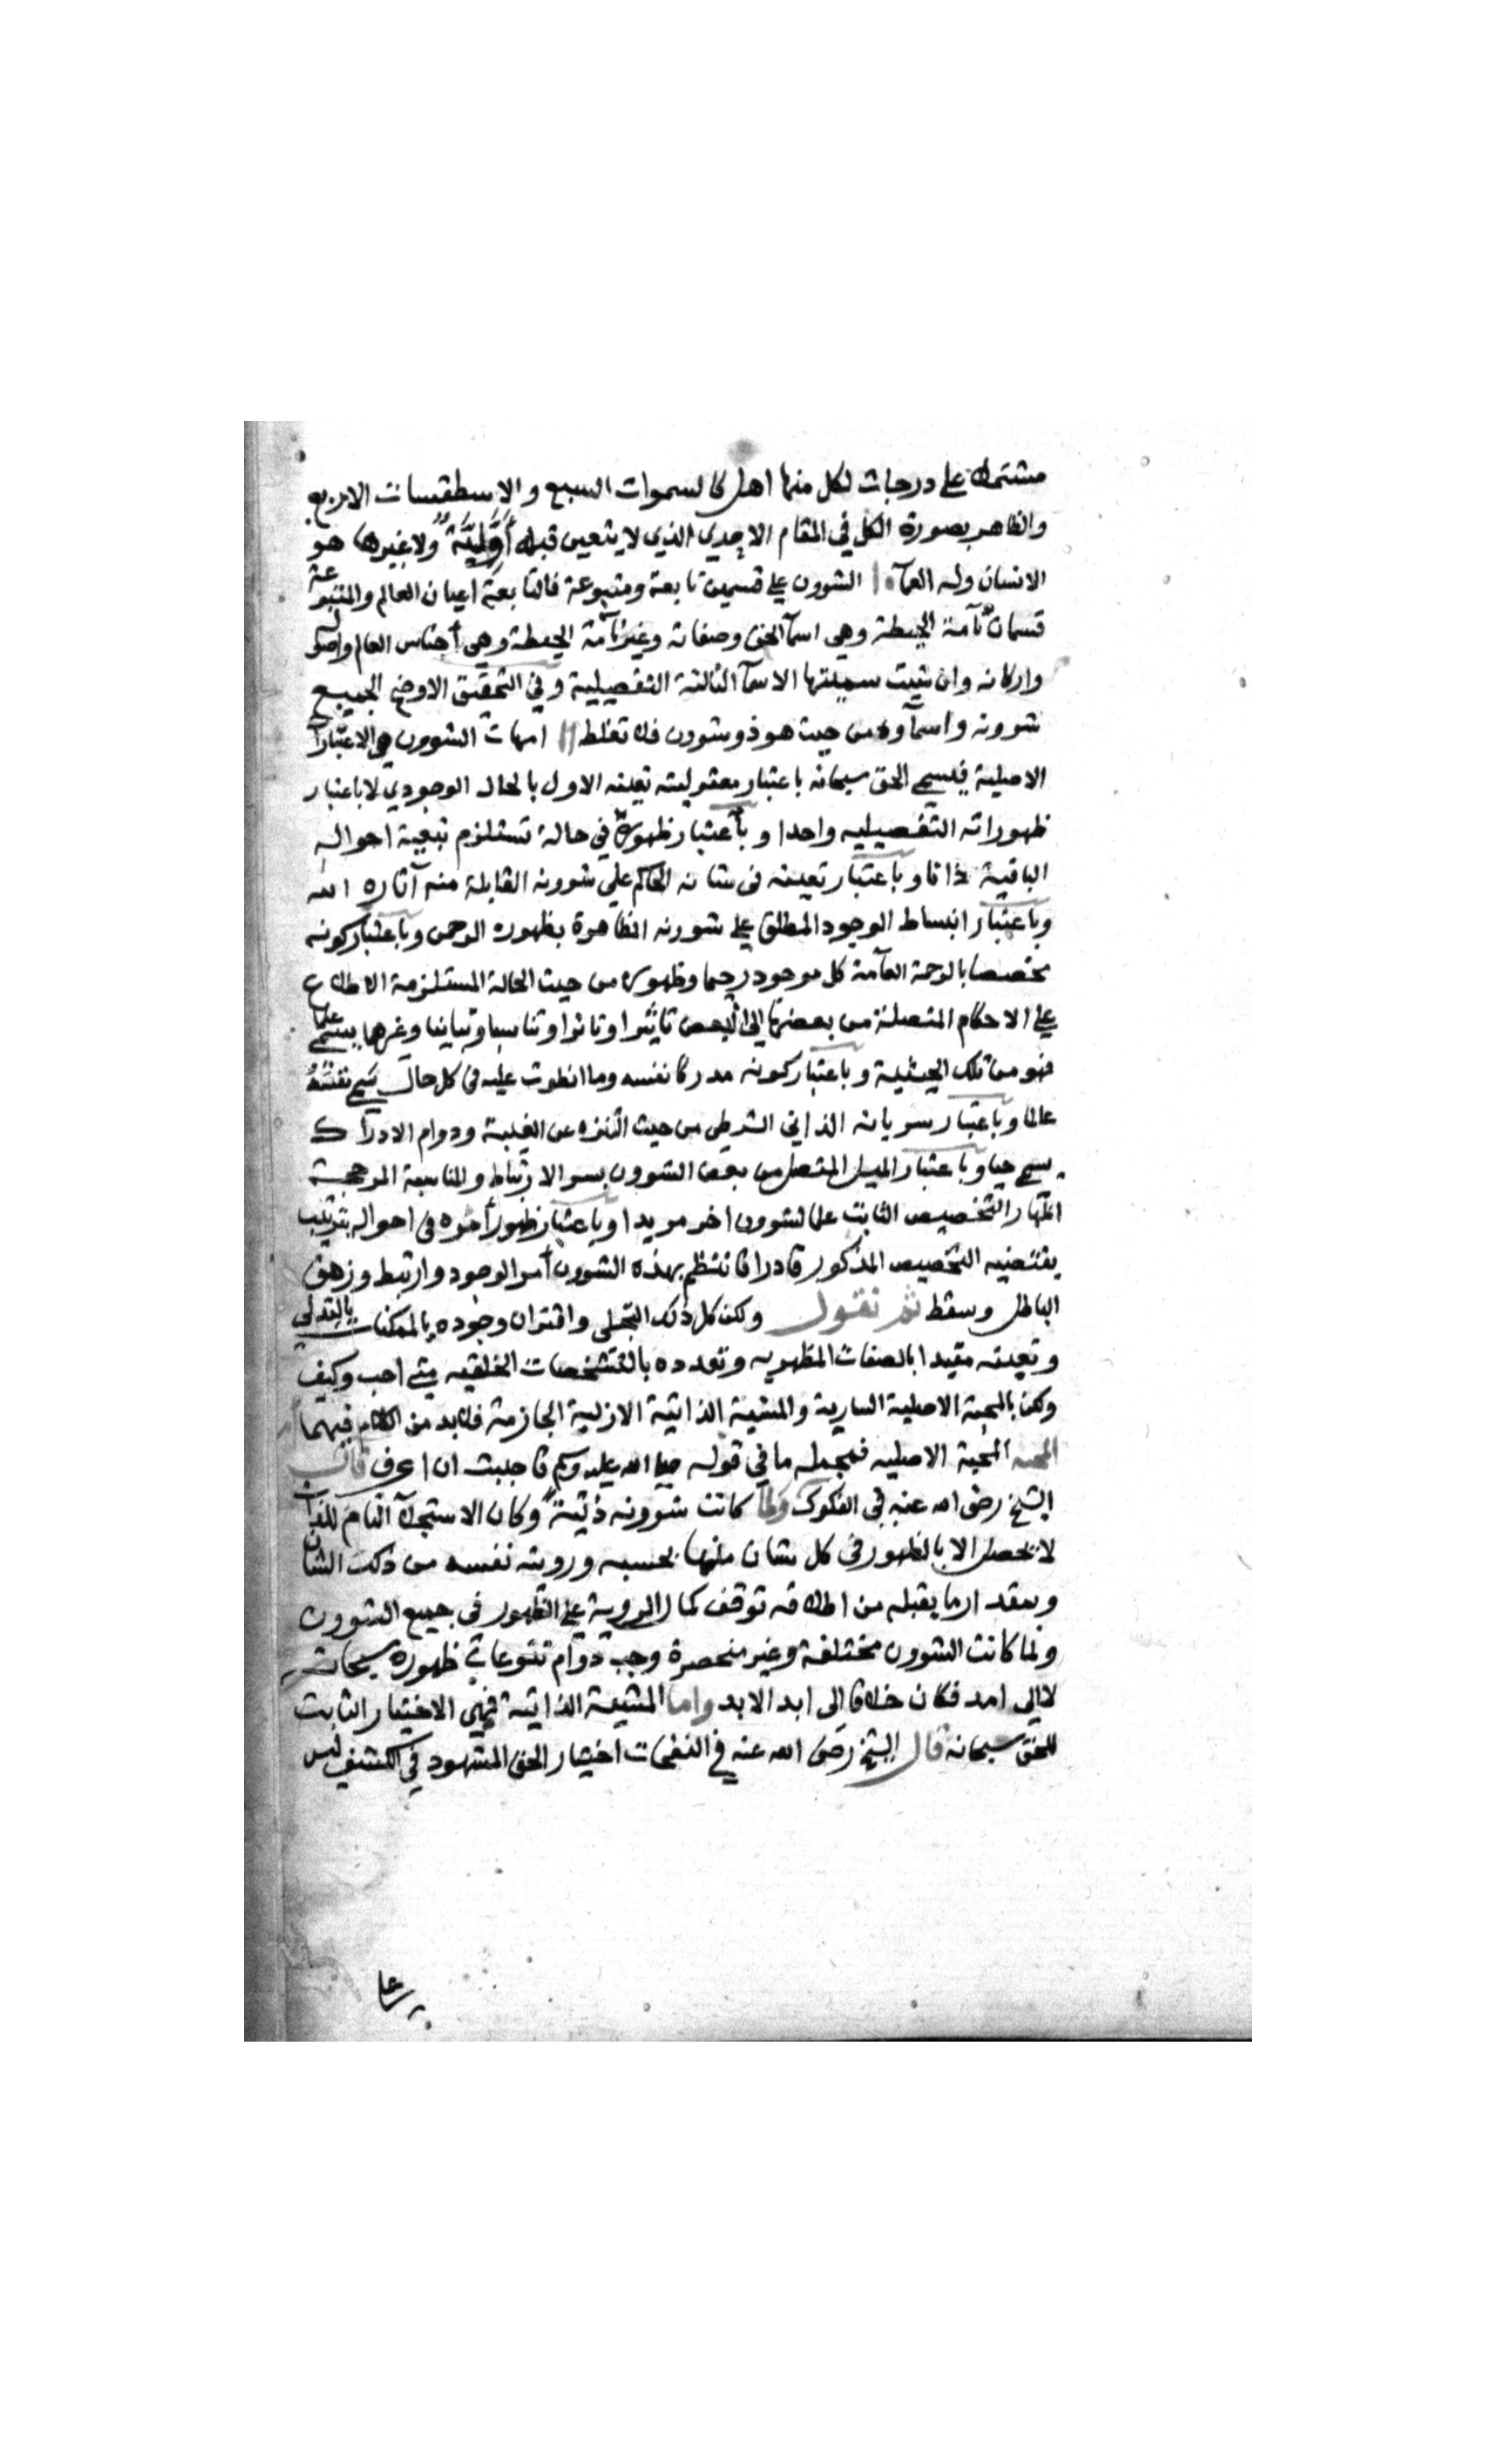 مشتملة على درجات لكل منها اهل كالسموات السبع والاسطقسات الاربع
والظاهر بصورة الكل في المقام الاحدي الذي لا يتعين قبله أوّليّةٌ ولا غيرها هو
الانسان وله العمآء الشوون على قسمين تابعة ومتبوعة فالتابعة اعيان العالم والمتبوعة
قسمان تآمة الحيطة وهي اسمآ الحق وصفاته وغير تآمة الحيطة وهي أجناس العالم واصوله
واركانه وان شيت سميتها الاسمآ التالية التفصيلية وفي التحقيق الاوضح الجميع
شوونه واسمآوه من حيث هو ذو شوون فلا تغلط امهات الشوون هي الاعتبارآت
الاصلية فيسمى الحق سبحانه باعتبار معقولية تعينه الاول بالحال الوجودي لا باعتبار
ظهوراته التفصيليه واحدا وبأعتبار ظهوره في حالة تستلزم تبعية احواله
الباقية ذاتا وباعتبار تعينه في شانه الحاكم على شوونه القابلة منه آثاره الله
وباعتبار انبساط الوجود المطلق على شوونه الظاهرة بظهوره الرحمن وباعتبار كونه
مخصصا بالرحمة العآمة كل موجود رحيما وظهوره من حيث الحالة المستلزمة الاطلاع
على الاحكام المتصلة من بعضها الى البعض تاثيرا وتاثرا وتناسبا وتباينا وغيرها يسمى علما
فهو من تلك الحيثية وباعتبار كونه مدركا نفسه وما انطوت عليه في كل حال يسمى نفسه
عالما وباعتبار سريانه الذاتي الشرطي من حيث التنزه عن الغيبة ودوام الادراك
يسمى حيا وباعتبار الميل المتصل من بعض الشوون بسر الارتباط والمناسبة المرجحة
اظهار التخصيص الثابت علما لشوون اخر مريدا وباعتبار ظهور أثره في احواله بترتيب
يقتضيه التخصيص المذكور قادرا فانتظم بهذه الشوون أمر الوجود وارتبط وزهق
الباطل وسقط ثم نقول ولكن كل ذلك التجلى واقتران وجوده بالممكنات بالتدلي
وتعينه مقيدا بالصفات المظهريه وتعدده بالتشخصات الخلقيه متى احب وكيف
ولكن بالمحبة الاصلية السارية والمشية الذاتية الازلية الجازمة فلابد من الكلام فيهما
المحبه المحبة الاصليه فمجمله ما في قوله صلى الله عليه وسلم فاحببت ان اعرف قال
الشيخ رضى الله عنه في الفكوك ولما كانت شوونه ذاتيةً وكان الاستجلآ التام للذات
لا يحصل الا بالظهور في كل شان منها بحسبه ورويته نفسه من ذلك الشان
وبمقدار ما يقبله من اطلاقه توقف كمال الروية على الظهور في جميع الشوون
ولما كانت الشوون مختلفة وغير منحصرة وجب دوام تنوعات ظهوره سبحانه
لا الى امد فكان خلاقا الى ابد الابد واما المشيئة الذاتية فهي الاختيار الثابت
للحق سبحانه قال الشيخ رضى الله عنه في النفحات اختيار الحق المشهود في الكشف ليس